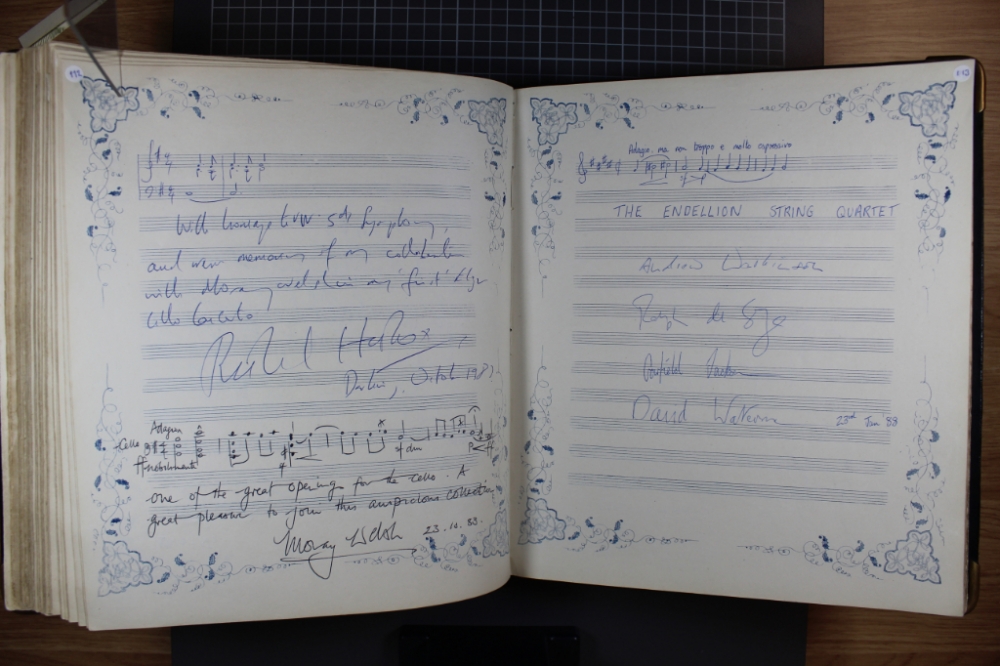 112
113
With homage to VW 5th Symphony,
and warm memories of my collaboration
with Moray Welsh in my 'first' Elgar
Cello Concerto
Richard Hickox
Cello
Adagio
ff nobilmente
sf
sf dim
one of the great openings for the cello. A
great pleasure to join this auspicious collection
Moray Welsh 23.10.83.
Adagio, ma non troppo e molto espressivo
THE ENDELLION STRING QUARTET
Andrew Watkinson
Ralph de Souza
Garfield Jackson
David Waterman
23rd Jan 88